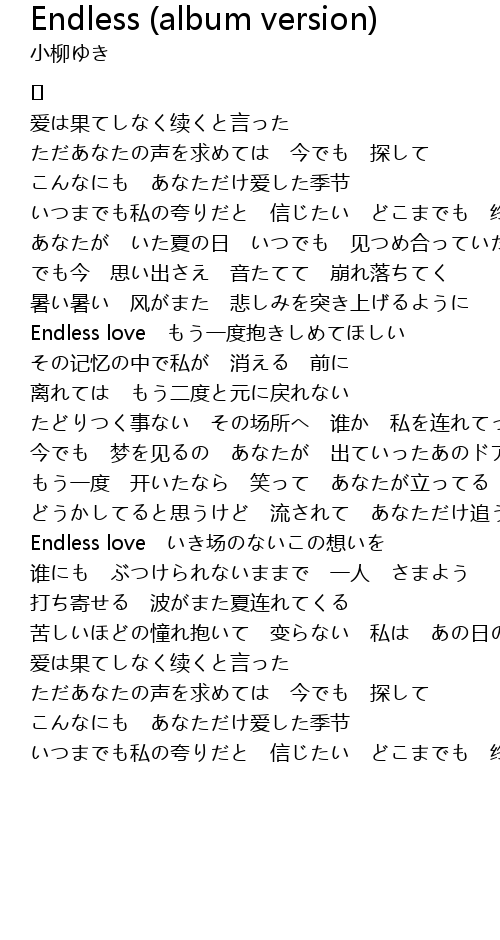 Endless (album version)
小柳ゆき
[]
爱は果てしなく续くと言った
ただあなたの声を求めては　今でも　探して
こんなにも　あなただけ爱した季节
いつまでも私の夸りだと　信じたい　どこまでも
あなたが　いた夏の日　いつでも　见つめ合っていた
でも今　思い出さえ　音たてて　崩れ落ちてく
暑い暑い　风がまた　悲しみを突き上げるように
Endless love　もう一度抱きしめてほしい
その记忆の中で私が　消える　前に
离れては　もう二度と元に戻れない
たどりつく事ない　その场所へ　谁か　私を连れてっ
今でも　梦を见るの　あなたが　出ていったあのドア
もう一度　开いたなら　笑って　あなたが立ってる
どうかしてると思うけど　流されて　あなただけ追う
Endless love　いき场のないこの想いを
谁にも　ぶつけられないままで　一人　さまよう
打ち寄せる　波がまた夏连れてくる
苦しいほどの憧れ抱いて　变らない　私は　あの日の
爱は果てしなく续くと言った
ただあなたの声を求めては　今でも　探して
こんなにも　あなただけ爱した季节
いつまでも私の夸りだと　信じたい　どこまでも